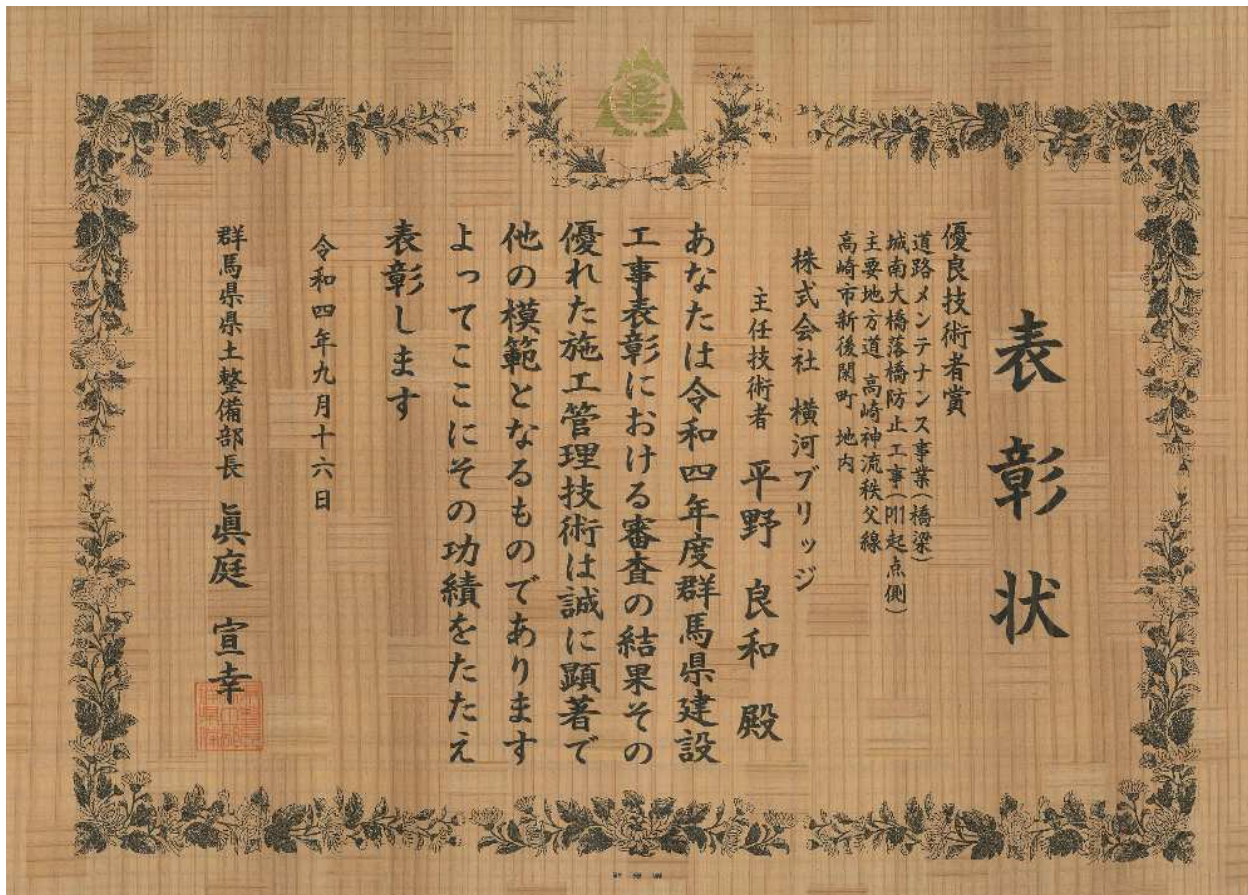 表彰状
優良技術者賞
道路メンテナンス事業(橋梁)
城南大橋落橋防止工事(川起点側)
主要地方道 高崎神流秩父線
高崎市新後閑町 地内
株式会社 横河ブリッジ
主任技術者 平野 良和 殿
あなたは令和四年度群馬県建設
工事表彰における審査の結果その
優れた施工管理技術は誠に顕著で
他の模範となるものであります
よってここにその功績をたたえ
表彰します
令和四年九月十六日
群馬県県土整備部長 眞庭 宣幸